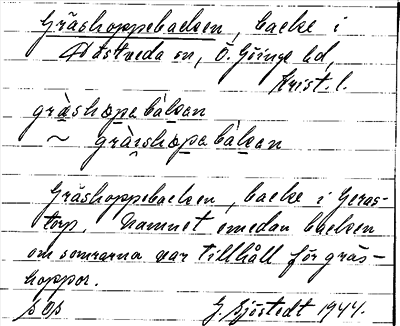 Gräshoppebacken, backe i
Hästveda sn, Ö. Göinge hd,
Krist. l.
gràshopebàkan
~ gràishopabàkan
Gräshoppebacken, backe i Geras-
torp. Namnet emedan backen
om somrarna var tillhåll för gräs-
hoppor.
G. Sjöstedt 1944.